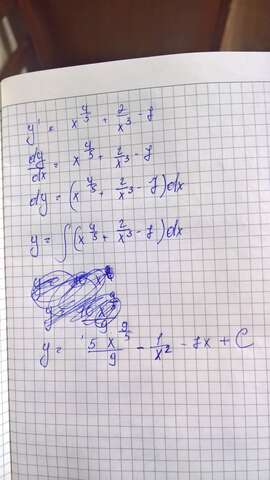 y' = x^(4/5) + 2/x^3 - 7
dy/dx = x^(4/5) + 2/x^3 - 7
dy = (x^(4/5) + 2/x^3 - 7)dx
y = ∫(x^(4/5) + 2/x^3 - 7)dx
y = 5x^(9/5)/9 - 1/x^2 - 7x + C